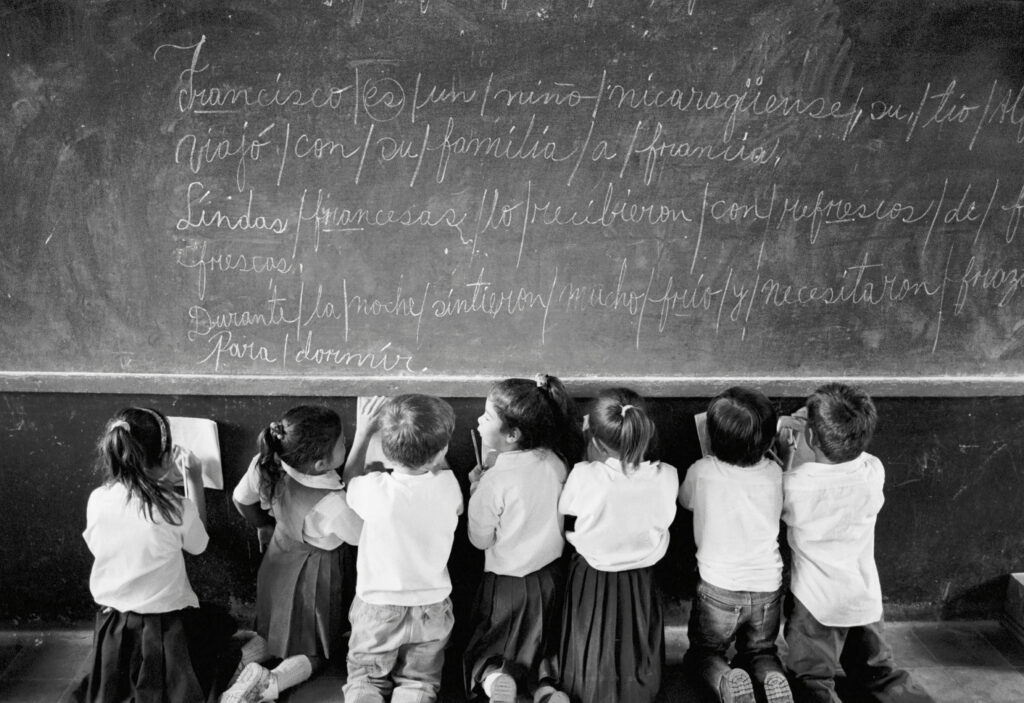 Francisco/es/un/niño/nicaragüense,/su,/tio/
viajó/con/su/familia/a/francia,
Lindas/francesas/lo/recibieron/con/refrescos/de/
frescas.
Durante/la/noche/sintieron/mucho/frío/y/necesitaron
Para/dormir.